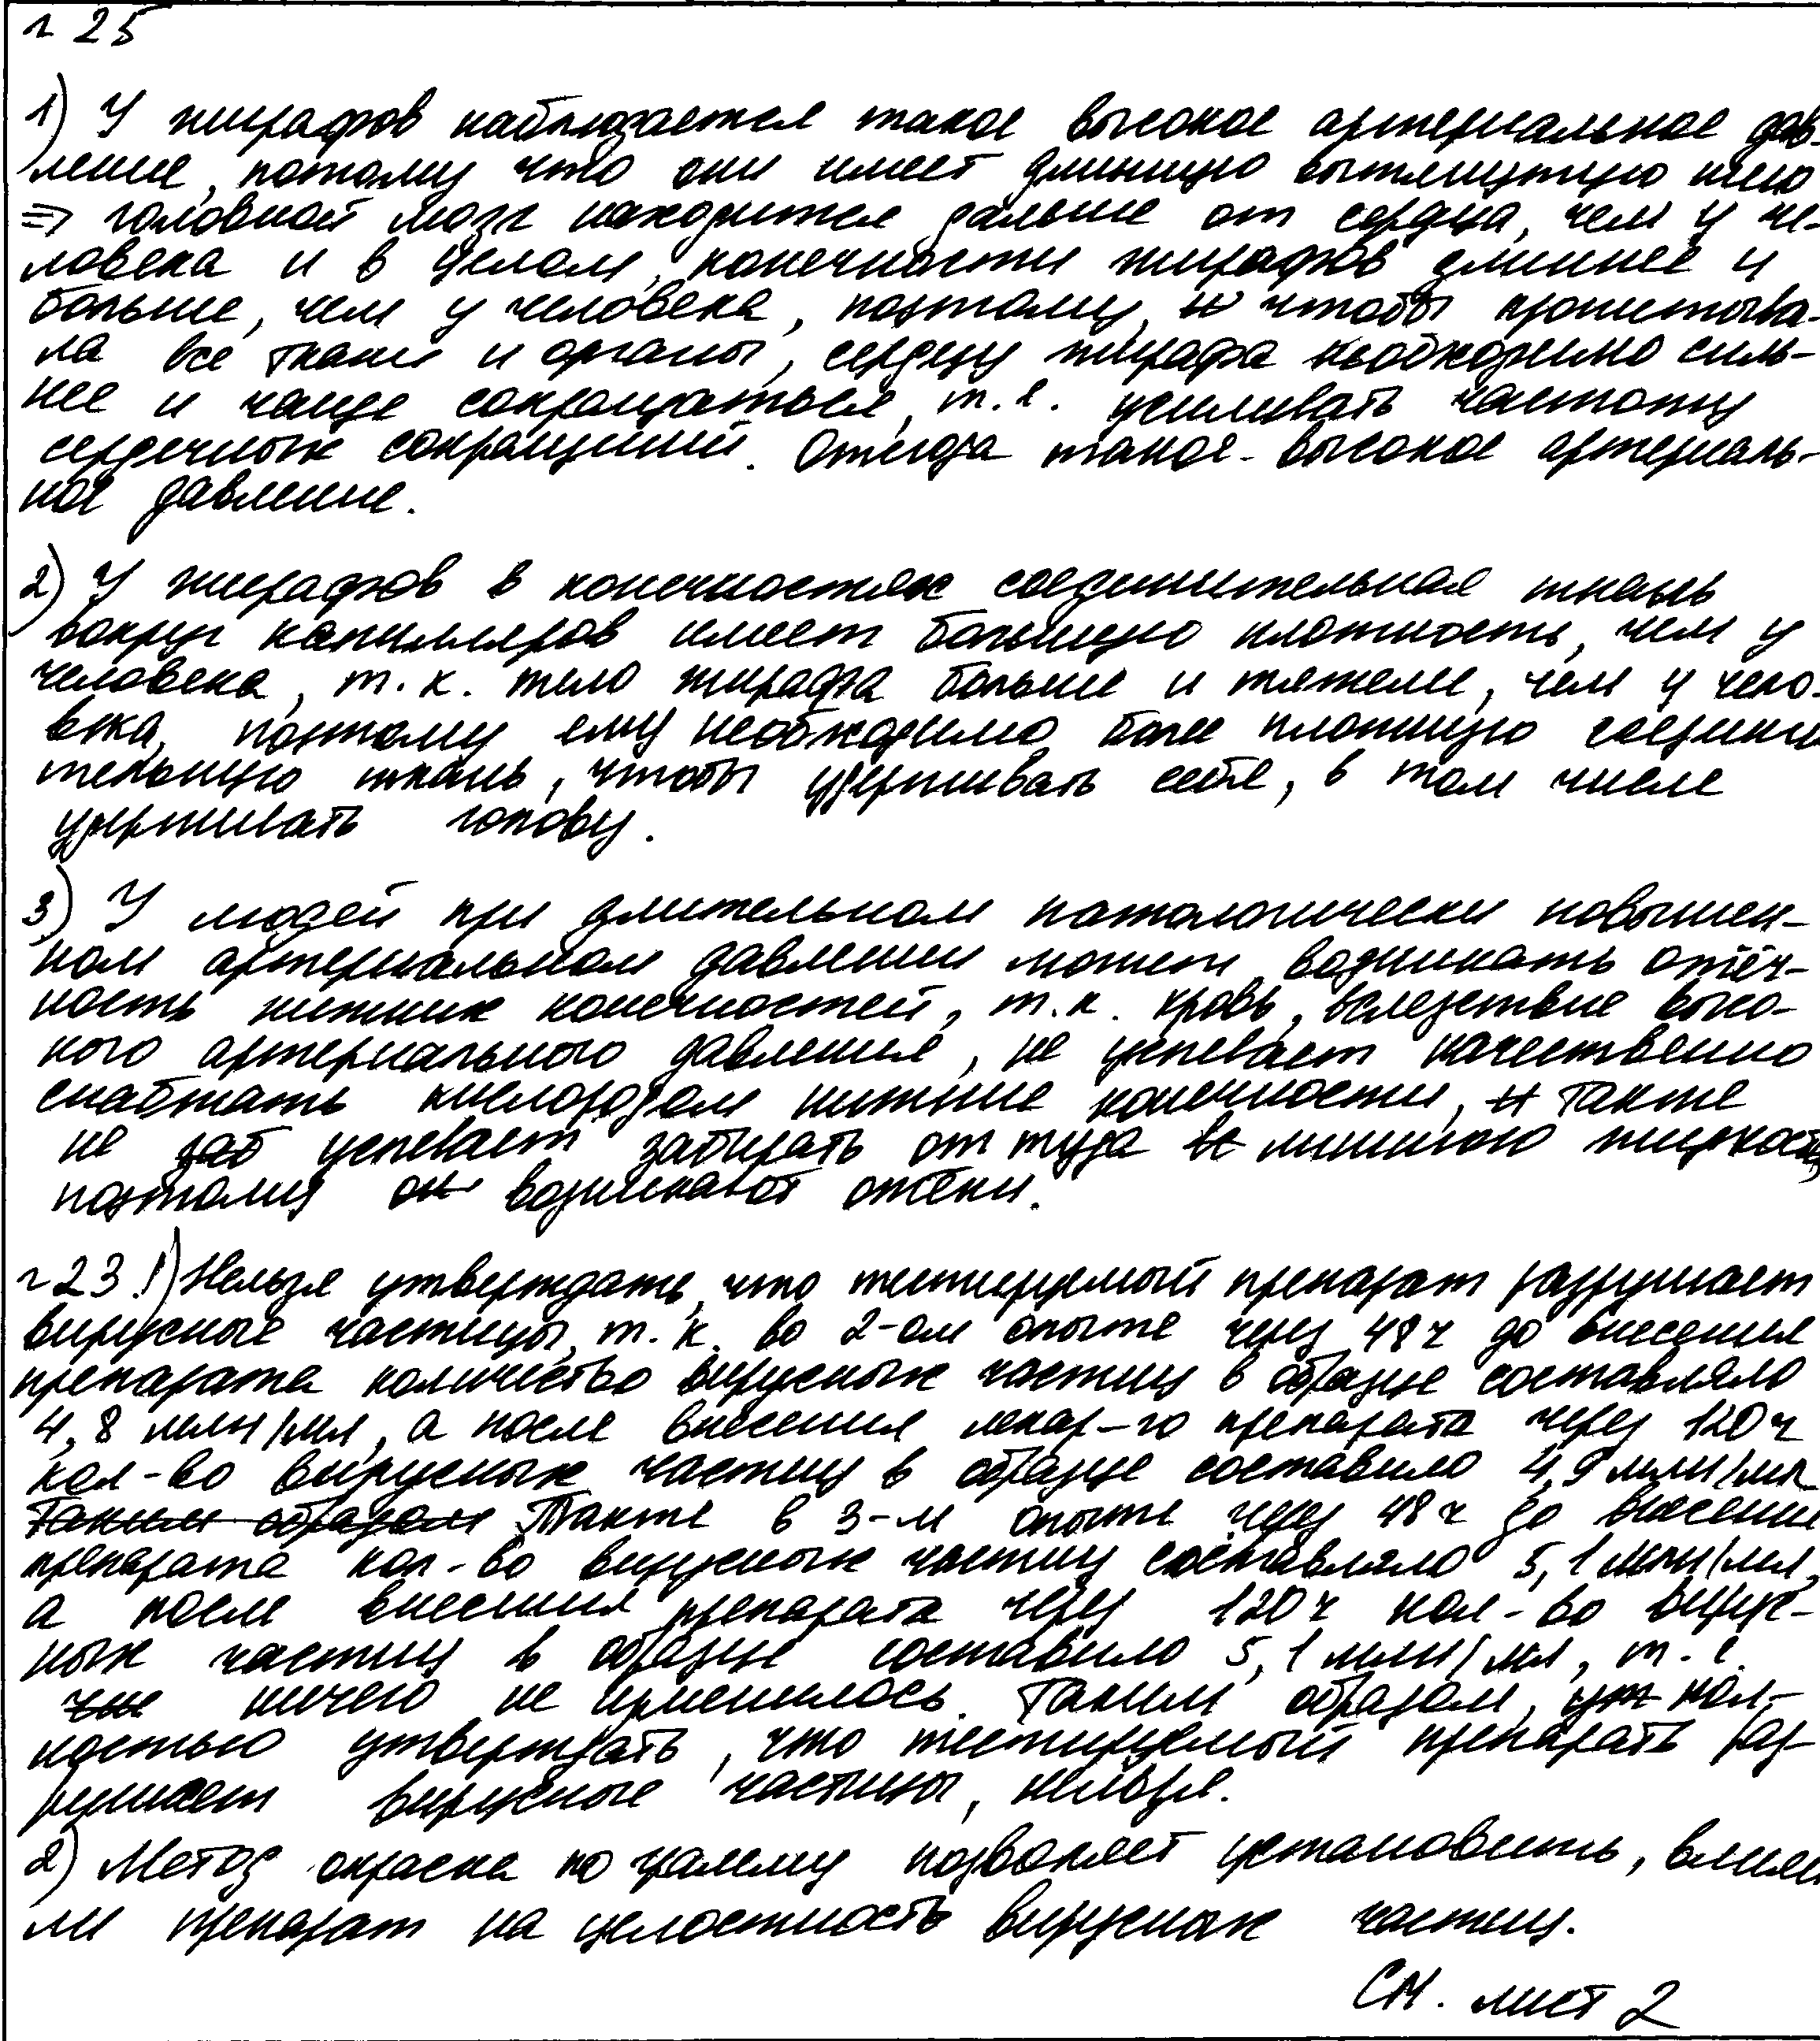 № 25
1) У жирафов наблюдается такое высокое артериальное дав-
ление, потому что они имеет длинную вытянутую шею
=> головной мозг находится дальше от сердца, чем у че-
ловека и в целом, конечности жирафов длиннее и
больше, чем у человека, поэтому, чтобы кровь питыва-
ла все ткани и органы, сердцу жирафа необходимо силь-
нее и чаще сокращаться, т.е. усиливать частоту
сердечных сокращений. Отсюда такое высокое артериаль-
ное давление.
2) У жирафов в конечностях соединительная ткань
вокруг капилляров имеет большую плотность, чем у
человека, т.к. тело жирафа больше и тяжелее, чем у чело-
века, поэтому ему необходимо более плотную соедини
тельную ткань, чтобы удерживать себя, в том числе
удерживать голову.
3) У людей при длительном патологически повышен-
ном артериальном давлении может возникать отёч-
ность нижних конечностей, т.к. кровь, вследствие высо-
кого артериального давления, не успевает качественно
снабжать кислородом нижние конечности, также
не успевает забирать от туда лишнюю жидкость,
поэтому возникают отёки.
№ 23 1) Нельзя утверждать, что тестируемый препарат разрушает
вирусные частицы, т.к. во 2-ом опыте через 48 ч до внесения
препарата количество вирусных частиц в образце составляло
4,8 млн/мл, а после внесения лекар-го препарата через 120 ч
кол-во вирусных частиц в образце составило 4,9 млн/мл
Таким образом Также в 3-м опыте через 48 ч до внесения
препарата кол-во вирусных частиц составляло 5,1 млн/мл,
а после внесения препарата через 120 ч кол-во вирус-
ных частиц в образце составило 5,1 млн/мл, т.е.
ничего не изменилось. Таким образом, пол-
ностью утверждать, что тестируемый препарать раз-
рушает вирусные частицы, нельзя.
2) Метод окраска по грамму позволяет установить, влияет
ли препарат на целостность вирусных частиц.
См. лист 2